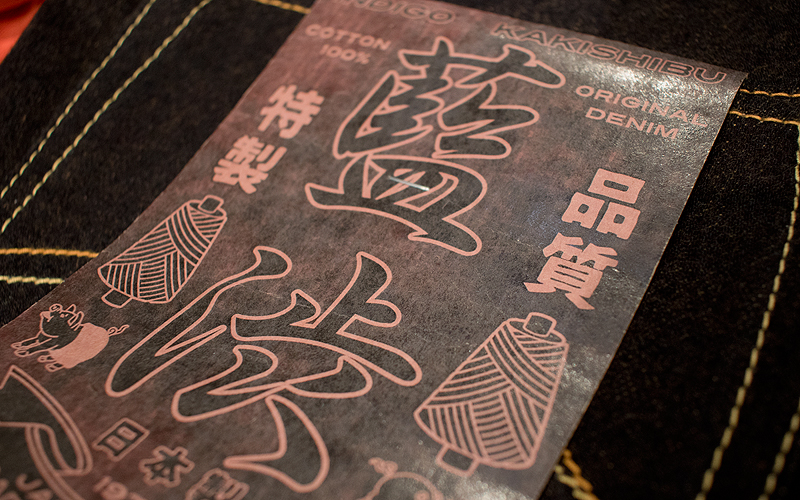 NDIGO KAKISHIBU
COTTON
100%
ORIGINAL
DENIM
藍渋
特製
品質
日本製
JA